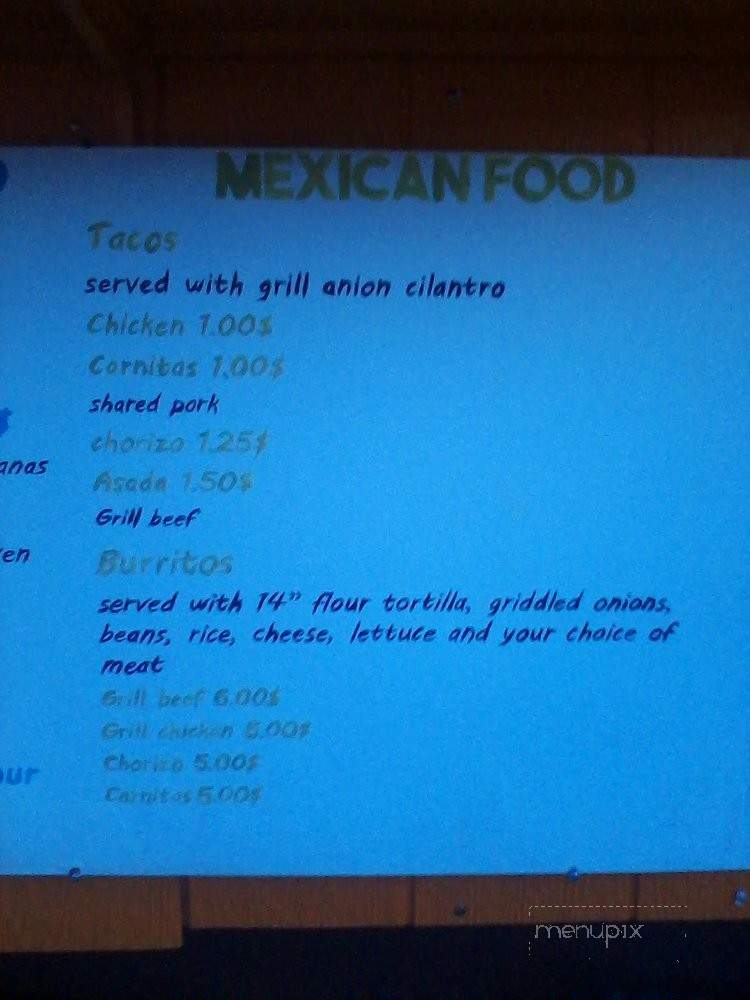 MEXICAN FOOD
Tacos
served with grill anion cilantro
Chicken 1.00$
Cornitas 1,00$
shared pork
chorizo 1.25$
anas
Asada 1.50$
Grill beef
en
Burritos
served with 14" flour tortilla, griddled onions,
beans, rice, cheese, lettuce and your choice of
meat
Grill beef 6.00$
Grill chicken 5.00$
our
Chorizo 5.00$
Carnitas 5.00$
menupix